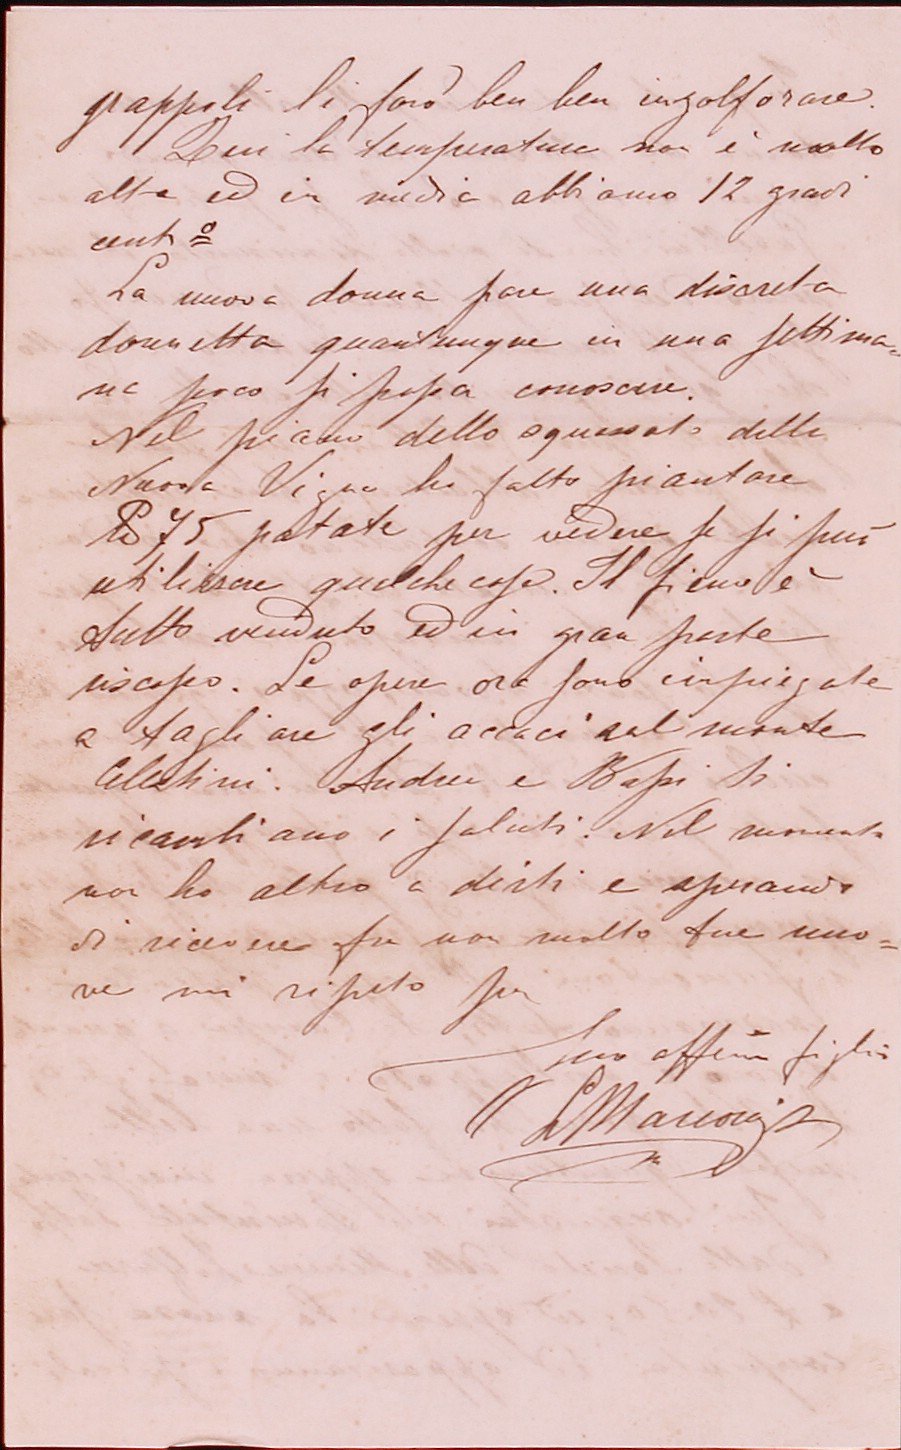 grappoli li farò ben ben ingolforare.
Qui la temperatura non è molto
alta ed in media abbiamo 12 gradi
centº
La nuova donna pare una discreta
donnetta quantunque in una settima=
na poco si possa conoscere.
Nel piano dello squassato della
Nuova Vigna ho fatto piantare
75 patate per vedere se si può
utilizzare qualche cosa. Il fieno è
tutto venduto ed in gran parte
riscosso. Le opere ora sono impiegate
a tagliare gli accaci sul monte
Celestini. Andrea e ti
ricambiano i saluti. Nel momento
non ho altro a dirti e sperando
di ricevere fra non molto tue nuo=
ve mi ripeto per
Suo affmo figlio